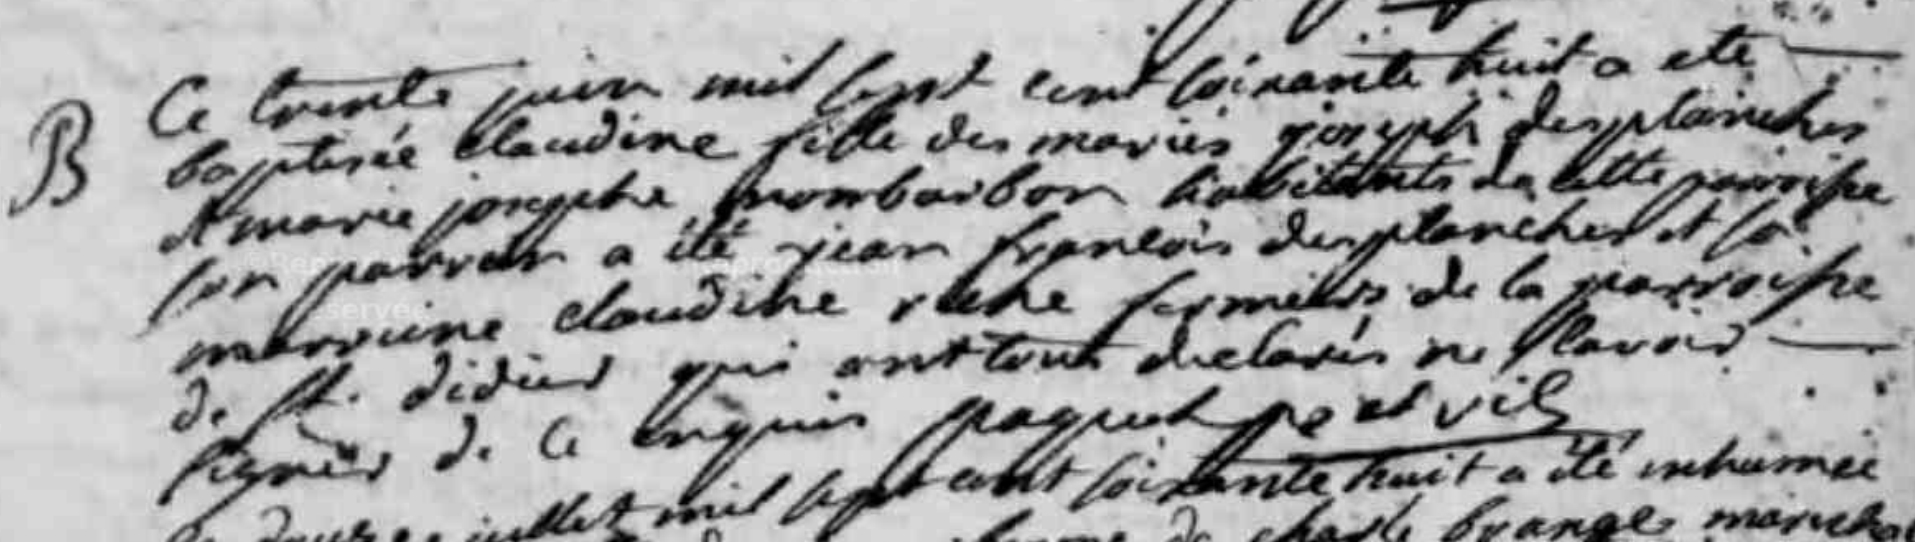 B
Ce trente juin mil sept cent soixante huit a ete
baptisée claudine fille des mariés joseph desplanches
et marie josephe mombarbon habitants de cette parroisse
son parrain a été jean francois desplanches et sa
marraine claudine fermiers de la parroisse
de st. didier qui ont tous declarés ne scavoir
signer de ce enquis paquet pe et vic
Ce douze juillet mil sept cent soixante huit a été inhumée
femme de charle marechal